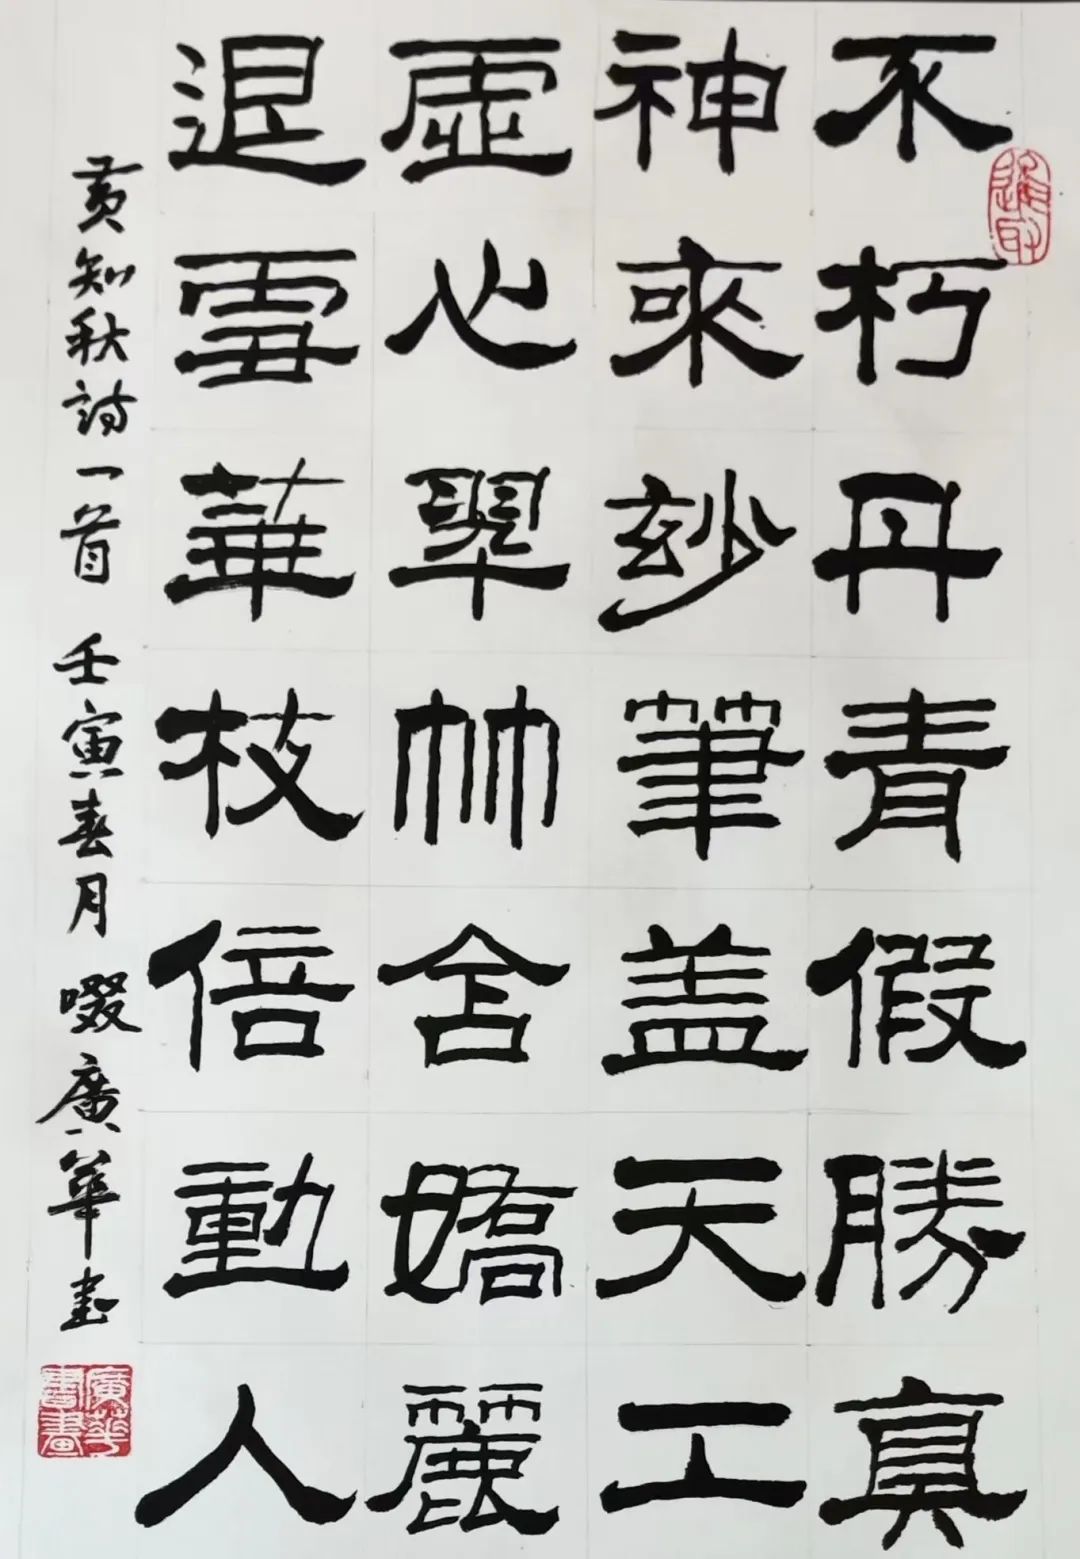 不朽丹青假勝真
神來妙筆盖天工
虛心翠竹含嬌麗
退雪華枝倍動人
黄知秋詩一首 壬寅春月 啜廣華书
進取
廣華書畫